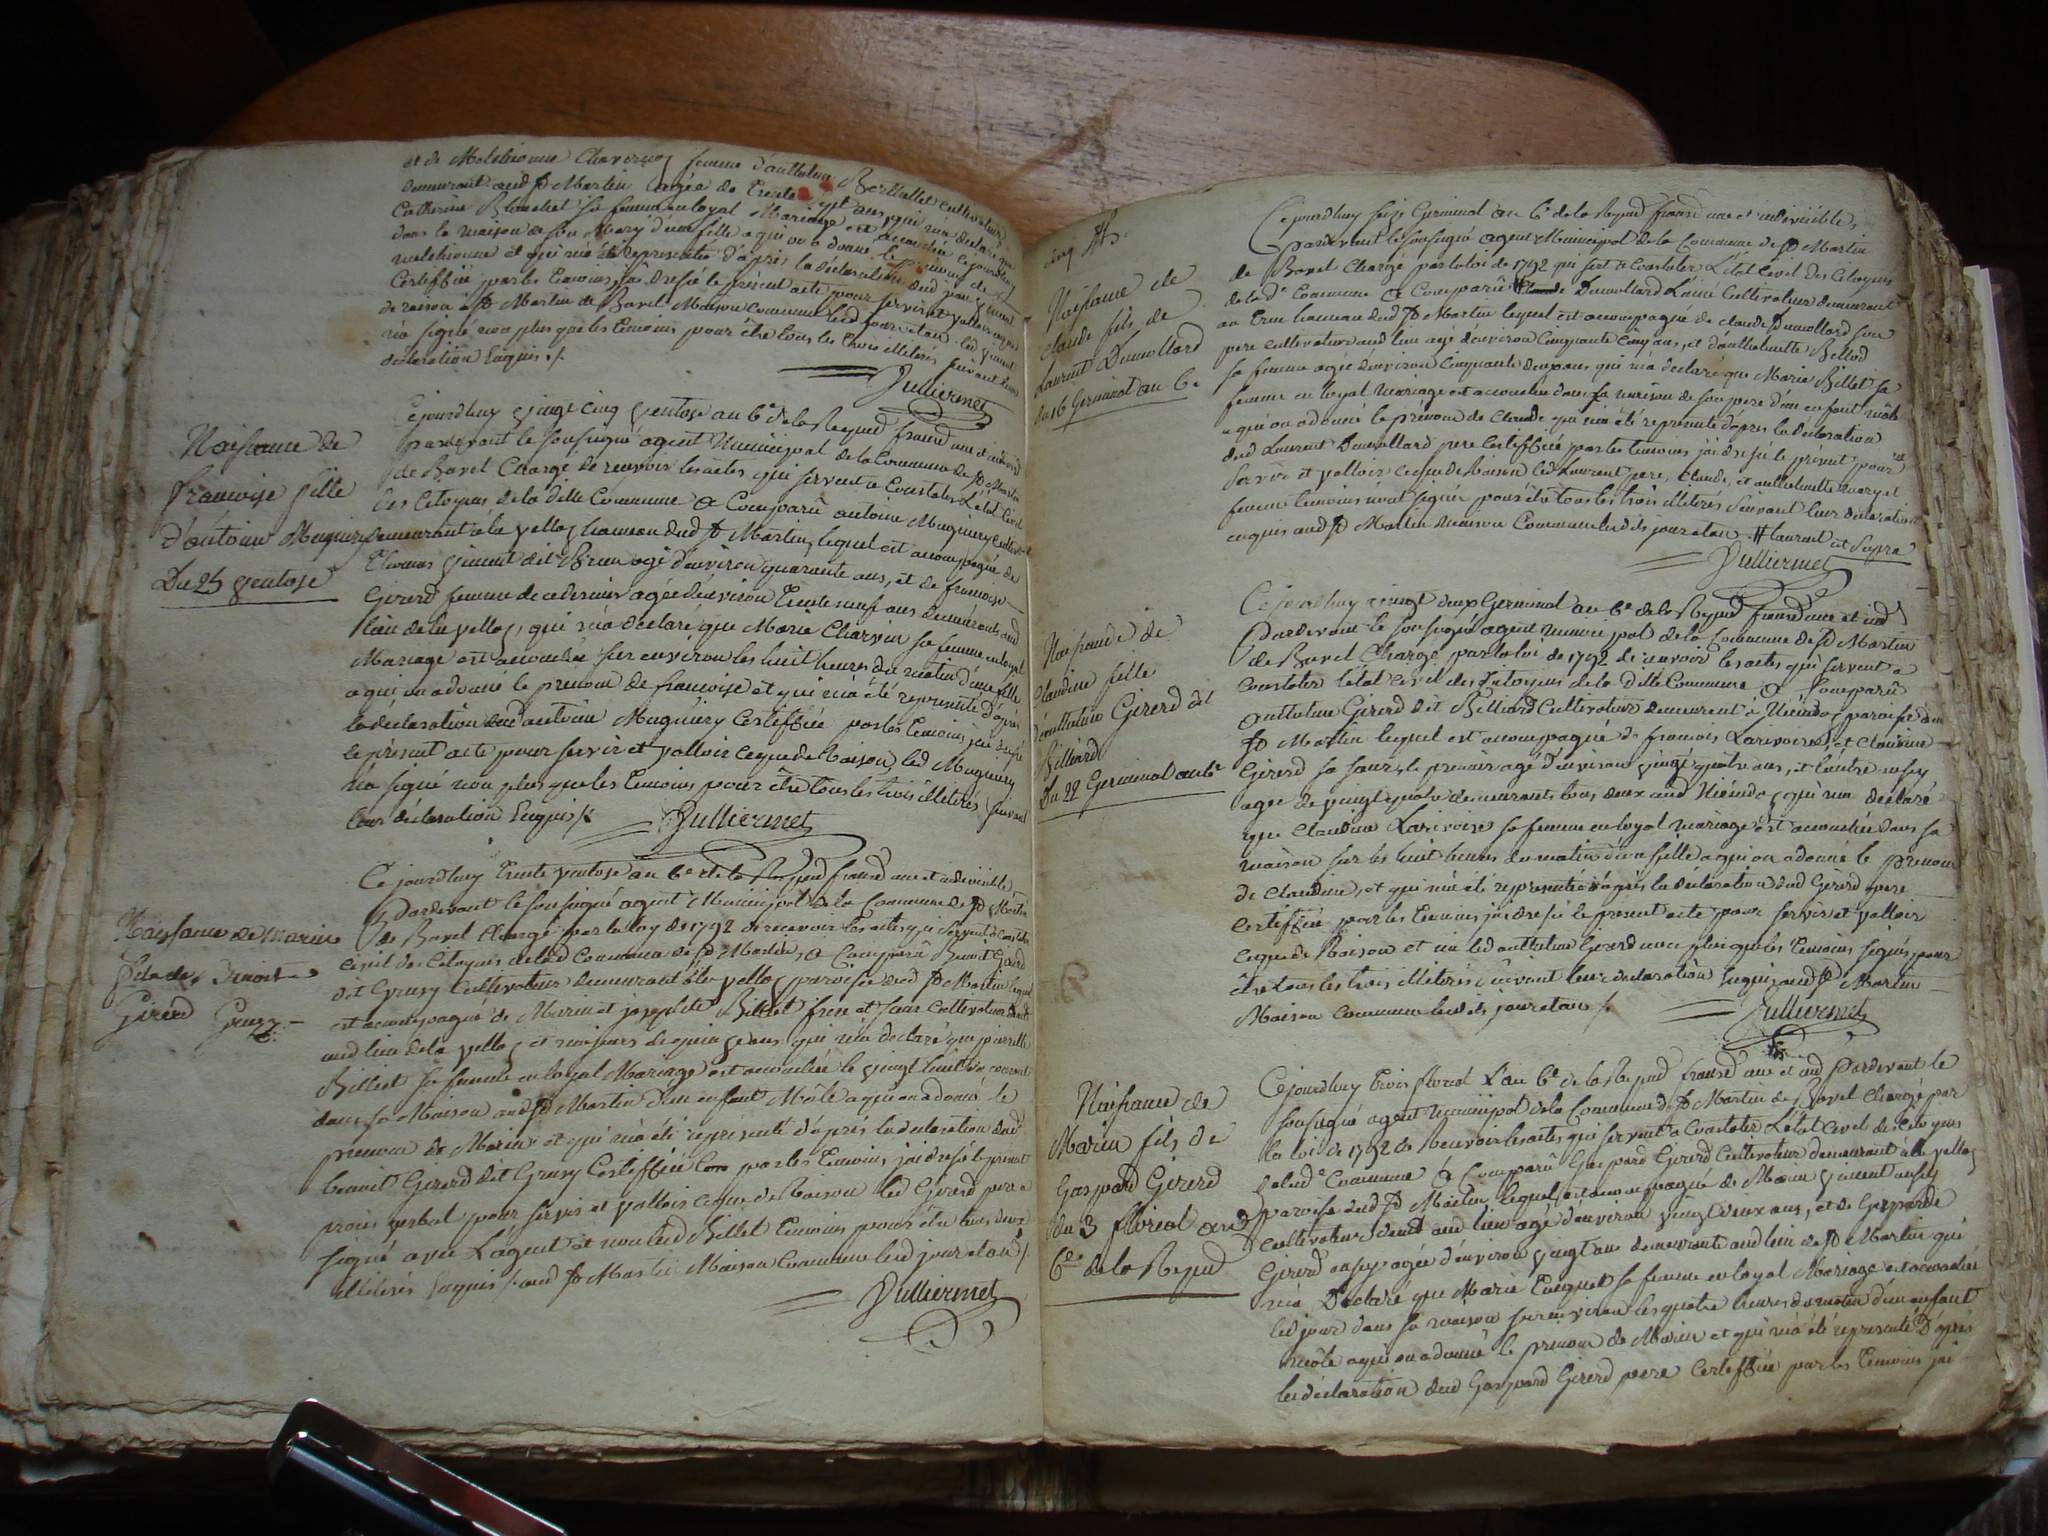 et de Melchionne Clavernoz femme d'anthelme Berthollet cultivateur
demeurant aud St Martin agée de trente sept ans, qui m'a declaré que
Catherine Blanchet sa femme en loyal Mariage est accouchée cejourdhuy
dans la maison de son Mary d'une fille a qui on a donné le prenom de
melchionne et qui m'a été representée d'après la déclaration dud
Certiffiée par les temoins, j'ai dressé le présent acte pour servir et valloir ceque
de raison a St Martin de Bavel Maison commune led jour et an led
n'a signé non plus que les temoins pour être tous les trois illiterés suivant leur
declaration Enquis ./.
Julliermet
Naissance de
francoise fille
d'antoine Muguiry
Du 25 ventose
Cejourdhuy vingt cinq ventose an 6e de la Repud francd une et indivisib
pardevant le soussigné agent Municipal de la Commune de St Martin
de Bavel Chargé de recevoir les actes qui servent a Constater L'état Civil
des Citoyens de la ditte Commune a Comparû antoine Muguiery cultivat
demeurant a la vellaz hameau dud St Martin, lequel est accompagné de
Thomas vincent dit Brun agé d'environ quarante ans, et de francoise
Gererd femme de ce dernier agée d'environ trente neuf ans demeurants aud
lieu de la vellaz, qui m'a déclaré que Marie Charvin sa femme en loyal
Mariage est accouchée sur environ les huit heures du matin d'une fille
a qui on a donné le prenom de francoise et qui m'a été representé d'après
la déclaration dud antoine Muguiery Certiffiée par les temoins j'ai dressé
le présent acte pour servir et valloir ceque de Raison, led Muguiery
na signé non plus que les temoins pour être tous les trois illiterés suivant
leur déclaration Enquis ./.
Julliermet
Naissance de marin
fils de Benoit
Gererd Gruzy
Ce jourdhuy trente ventose an 6e de la Repud francd une et indivisible
Pardevant le soussigné agent Municipal de la Commune de St Martin
de Bavel Chargé par la loy de 1792 de recevoir les actes qui servent a Constater
civil des citoyens de lad Commune de St Martin, a Comparû Benoit Gererd
dit Gruzy Cultivateur demeurant a la vellaz paroisse dud St Martin lequel
est accompagné de Marin et josephte Billiet frere et soeur Cultivateurs
aud lieu de la vellaz et majeurs de quinze ans qui m'a declaré que pierrette
Billiet sa femme en loyal Mariage est accouchée le vingt huit du courant
dans sa Maison aud St Martin d'un enfant Mâle a qui on a donné le
prenom de Marin et qui m'a été représenté d'après la déclaration dud
benoit Gererd dit Gruzy Certiffiée par les temoins, j'ai dressé le présent
procès verbal pour servir et valloir ceque de Raison led Gererd pere a
signé avec L'agent et non led Billiet temoins pour être tous deux
illiterés Enquis ./. aud St Martin Maison Commune led jour et an ./.
Julliermet
cinq
Naissance de
claude fils de
Laurent Dumollard
du 16 Germinal an 6e
Cejourdhuy seize Germinal an 6e de la Repud francd une et indivisible,
pardevant le soussigné agent Municipal de la Commune de St Martin
de Bavel Chargé par la loi de 1792 qui sert a Constater L'état Civil des Citoyens
de la de Commune a Comparû Dumollard Lainé Cultivateur demeurant
au hameau dud St Martin lequel est accompagné de claude Dumollard son
pere cultivateur aud lieu agé d'environ Cinquante cinq ans, et d'anthelmette Billiod
sa femme agée d'environ Cinquante deux ans qui m'a declaré que Marie Billet sa
femme en loyal mariage est accouchée dans la maison de son pere d'un enfant mâle
a qui on a donné le prenom de claude qui m'a été representé d'après la declaration
dud Laurent Dumollard pere Certiffiée par les temoins j'ai dressé le présent pour
servir et valloir ceque de Raison led Laurent pere, Claude, et anthelmette mary et
femme temoins n'ont signée pour être tous les trois illiterés suivant leur declaration
enquis aud St Martin maison Commune led jour et an. # laurent est Sopra
Julliermet
Naissance de
claudine fille
d'anthelme Gererd dit
Billiard
Du 22 Germinal an 6e
Cejourdhuy vingt deux Germinal an 6e de la Repud francd une et ind
Pardevant le soussigné agent municipal de la Commune de St Martin
de Bavel Chargé par la loi de 1792 de recevoir les actes qui servent a
Constater létat civil des Citoyens de la ditte Commune a Comparû
Anthelme Gererd dit Billiard Cultivateur demeurant a paroisse dud
St Martin lequel est accompagné de francois Larivoire, et Claudine
Gererd sa soeur, le premier agé d'environ vingt quatre ans, et l'autre aussy
agée de vingt quatre demeurants tous deux aud qui m'a déclaré
que Claudine Larivoire sa femme en loyal mariage est accouchée dans sa
maison sur les huit heures du matin d'une fille a qui on a donné le prenom
de Claudine, et qui m'a été representée d'après la déclaration dud Gererd pere
certiffiée par les temoins j'ai dressé le présent acte pour servir et valloir
ceque de Raison et n'a led anthelme Gererd non plus que les temoins signés pour
être tous les trois illiterés suivant leur déclaration Enquis aud St Martin
Maison commune led jour et an ./.
Julliermet
Naissance de
Marin fils de
Gaspard Gererd
du 3 floréal an
6e de la Repud
Cejourdhuy trois floréal L'an 6e de la Repud francd une et ind Pardevant le
soussigné agent municipal de la Commune de St Martin de Bavel Chargé par
la loi de 1792 de Recevoir les actes qui servent a Constater L'état Civil des Citoyens
de lade Commune a Comparû Gaspard Gererd Cultivateur demeurant a la vellaz
paroisse dud St Martin, lequel est accompagné de Marin vincent aussy
cultivateur demt aud lieu agé d'environ vingt deux ans, et de Gasparde
Gererd aussy agée d'environ vingt ans demeurante aud lieu de St Martin qui
m'a Déclaré que Marie sa femme en loyal Mariage est accouchée
led jour dans sa maison sur environ les quatre heures du matin d'un enfant
mâle a qui on a donné le prenom de Marin et qui m'a été representé D'après
la déclaration dud Gaspard Gererd pere Certiffiée par les temoins j'ai